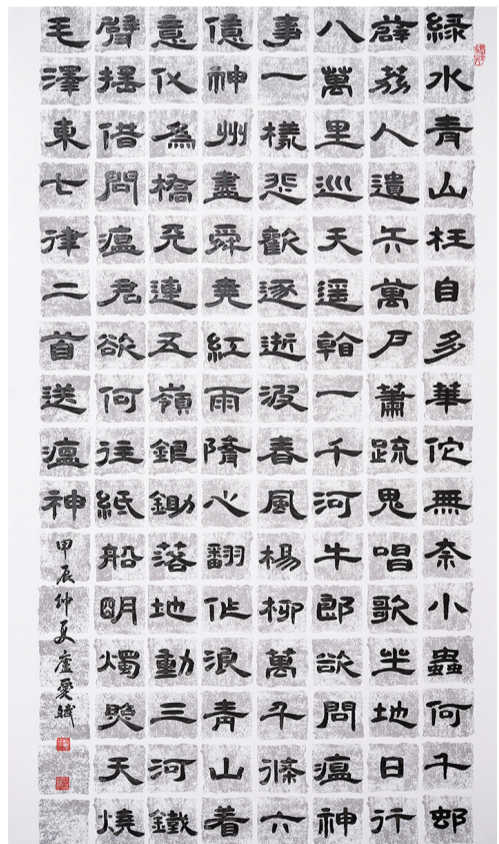 綠水青山枉自多華佗無奈小蟲何千邨
薜荔人遺矢萬戶蕭疏鬼唱歌坐地日行
八萬里巡天遙看一千河牛郎欲問瘟神
事一樣悲歡逐逝波春風楊柳萬千條六
億神州盡舜堯紅雨隨心翻作浪青山着
意化為橋天連五嶺銀鋤落地動三河鐵
臂搖借問瘟君欲何往紙船明燭照天燒
毛澤東七律二首送瘟神
甲辰仲夏盧愛斌